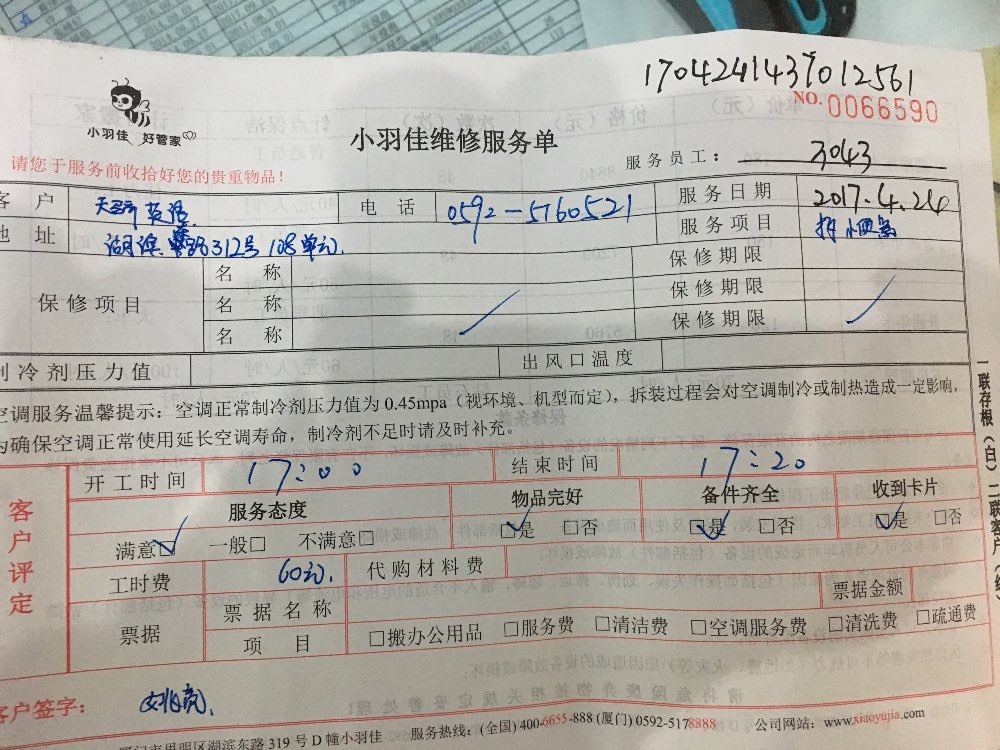 1704241437012561
NO. 0066590
小羽佳 好管家
小羽佳维修服务单
服务员工： 3043
请您于服务前收拾好您的贵重物品！
客 户 天骄英语 电 话 0592-5160521 服务日期 2017.4.24
地 址 湖滨 路312号 108单元. 服务项目 拆
保修项目 名 称 保修期限
名 称 保修期限
名 称 保修期限
制冷剂压力值 出风口温度
空调服务温馨提示：空调正常制冷剂压力值为 0.45mpa（视环境、机型而定），拆装过程会对空调制冷或制热造成一定影响，
为确保空调正常使用延长空调寿命，制冷剂不足时请及时补充。
客户评定
开工时间 17:00 结束时间 17:20
服务态度 物品完好 备件齐全 收到卡片
满意☑ 一般□ 不满意□ ☑是 □否 ☑是 □否 ☑是 □否
工时费 60元. 代购材料费
票据 票据名称 票据金额
项 目 □搬办公用品 □服务费 □清洁费 □空调服务费 □清洗费 □疏通费
客户签字： 姚亮.
厦门市思明区湖滨东路 319 号 D 幢小羽佳 服务热线：(全国) 400-6655-888 (厦门) 0592-5178888 公司网站：www.xiaoyujia.com
一联存根（白）二联客户（红）